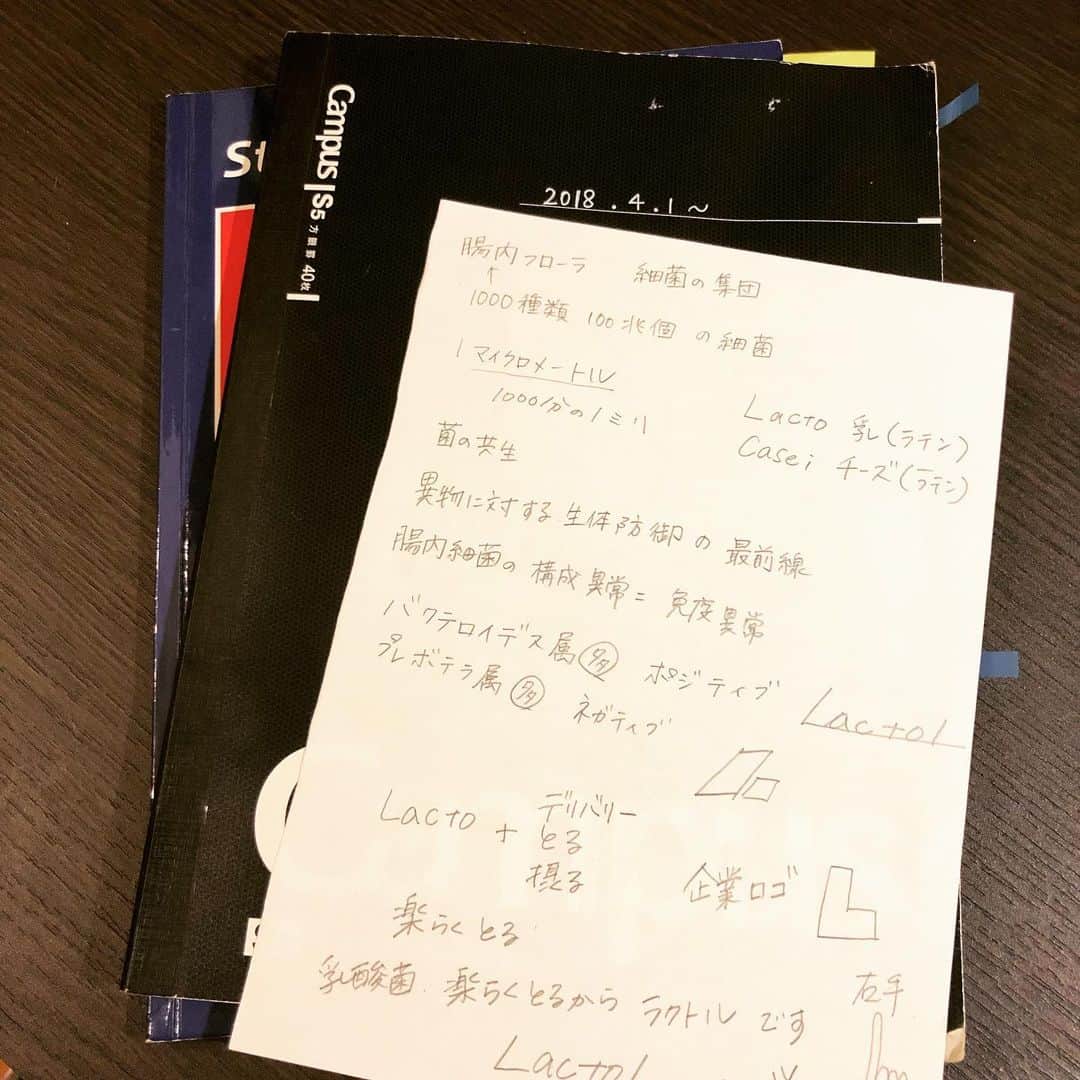 St
Campus
S5
方眼罫
40枚
2018.4.1～
腸内フローラ 細菌の集団
↑
1000種類 100兆個 の細菌
1マイクロメートル
1000分の1ミリ
Lacto 乳(ラテン)
Casei チーズ(ラテン)
菌の共生
異物に対する 生体防御 の 最前線
腸内細菌の 構成異常= 免疫異常
バクテロイデス属 多 ポジティブ
プレボテラ属 多 ネガティブ
Lactol
Lacto + デリバリー
とる
摂る
企業ロゴ
楽らくとる
乳酸菌.楽らくとるから ラクトル です
右手
Lactol